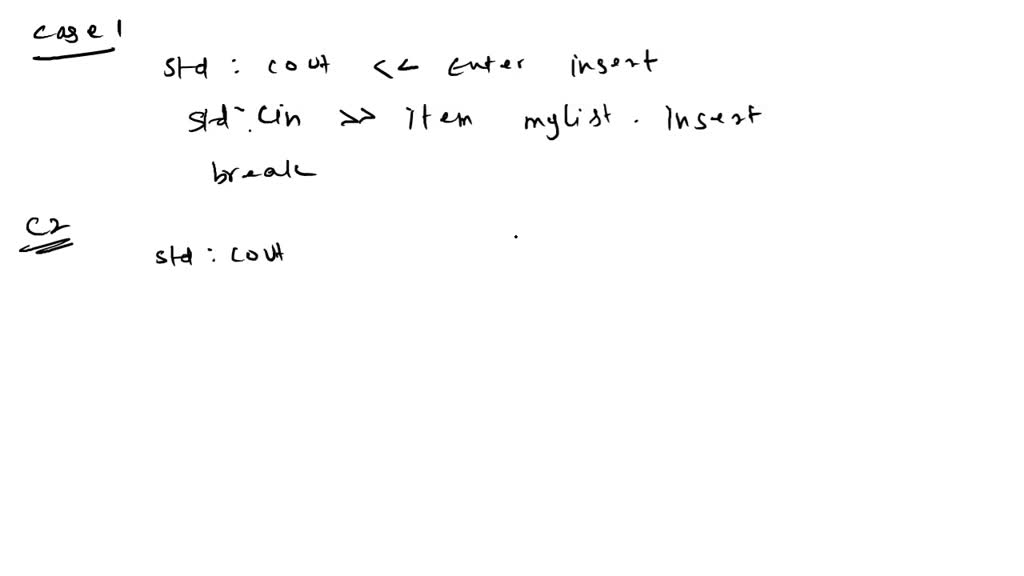 case 1
std : cout << Enter insert
std : cin >> item mylist . insert
break
C2
std : cout